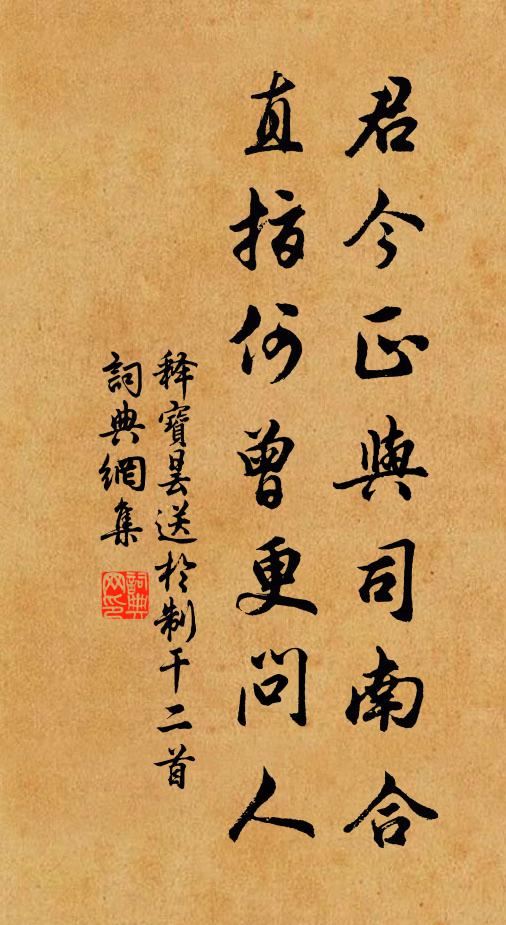 君今正與司南合
直指何曾更問人
釋寶曇送於制干二首
詞典網集
詞典网印